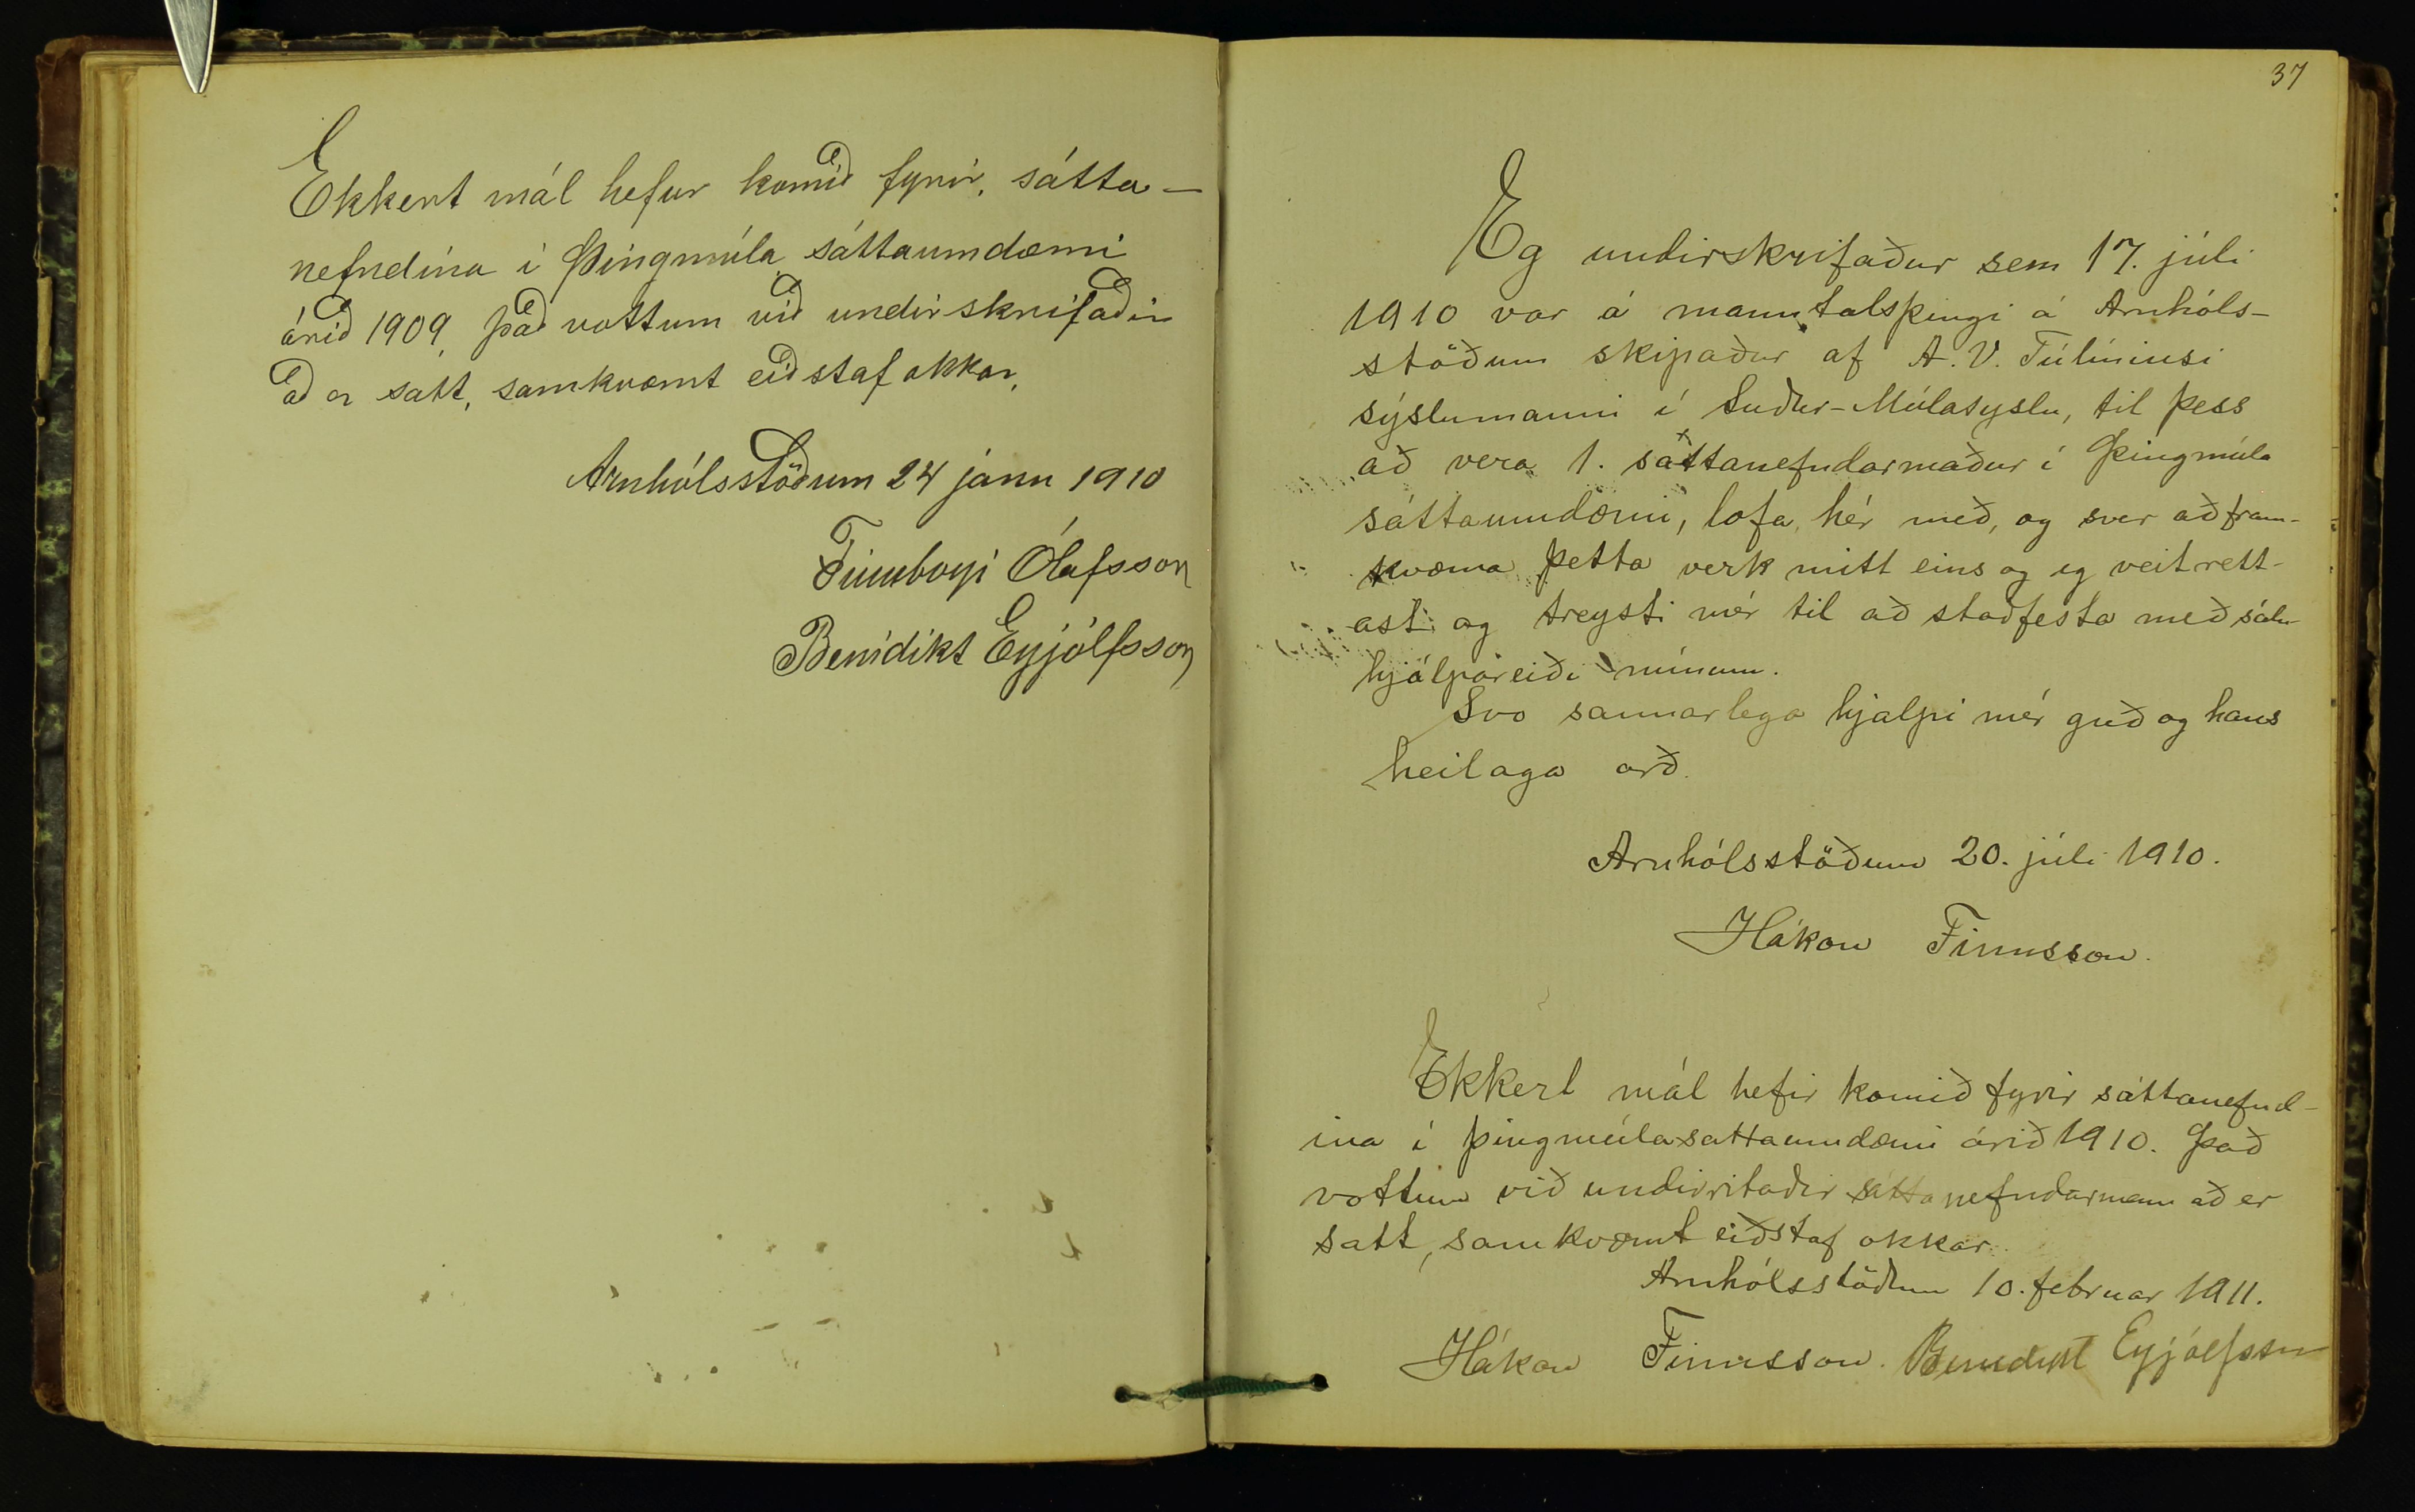 Ekkert mál hefur komið fyrir, sátta-
nefndina í Þingmúla sáttaumdæmi
árið 1909, það vottum við undirskrifaðir
að er satt, samkvæmt eiðstaf okkar,
Arnhólsstöðum 24 janu 1910
Finnbogi Ólafsson
Benidikt Eyjólfsson
37
Eg undirskrifaður sem 17. júli
1910 var á manntalsþingi á Arnhóls-
stöðum skipaður af A. V. Túliniusi
sýslumanni í Suður-Múlasyslu, til þess
að vera 1. sáttanefndarmaður í Þingmúla
sáttaumdæmi, lofa hér með, og sver að fram-
kvæma þetta verk mitt eins og eg veit rétt-
ast og treysti mér til að staðfesta með sálu-
hjálpareiði mínum.
Svo sannarlega hjalpi mér guð og hans
heilaga orð.
Arnhólsstöðum 20. júli 1910.
Hákon Finnsson.
Ekkert mál hefir komið fyrir sáttanefnd-
ina í þingmúlasattaumdæmi árið 1910. Það
vottum við undirritaðir sáttanefndarmenn að er
satt, samkvæmt eiðstaf okkar.
Arnhólsstöðum 10. februar 1911.
Hákon Finnsson. Benedikt Eyjólfsson